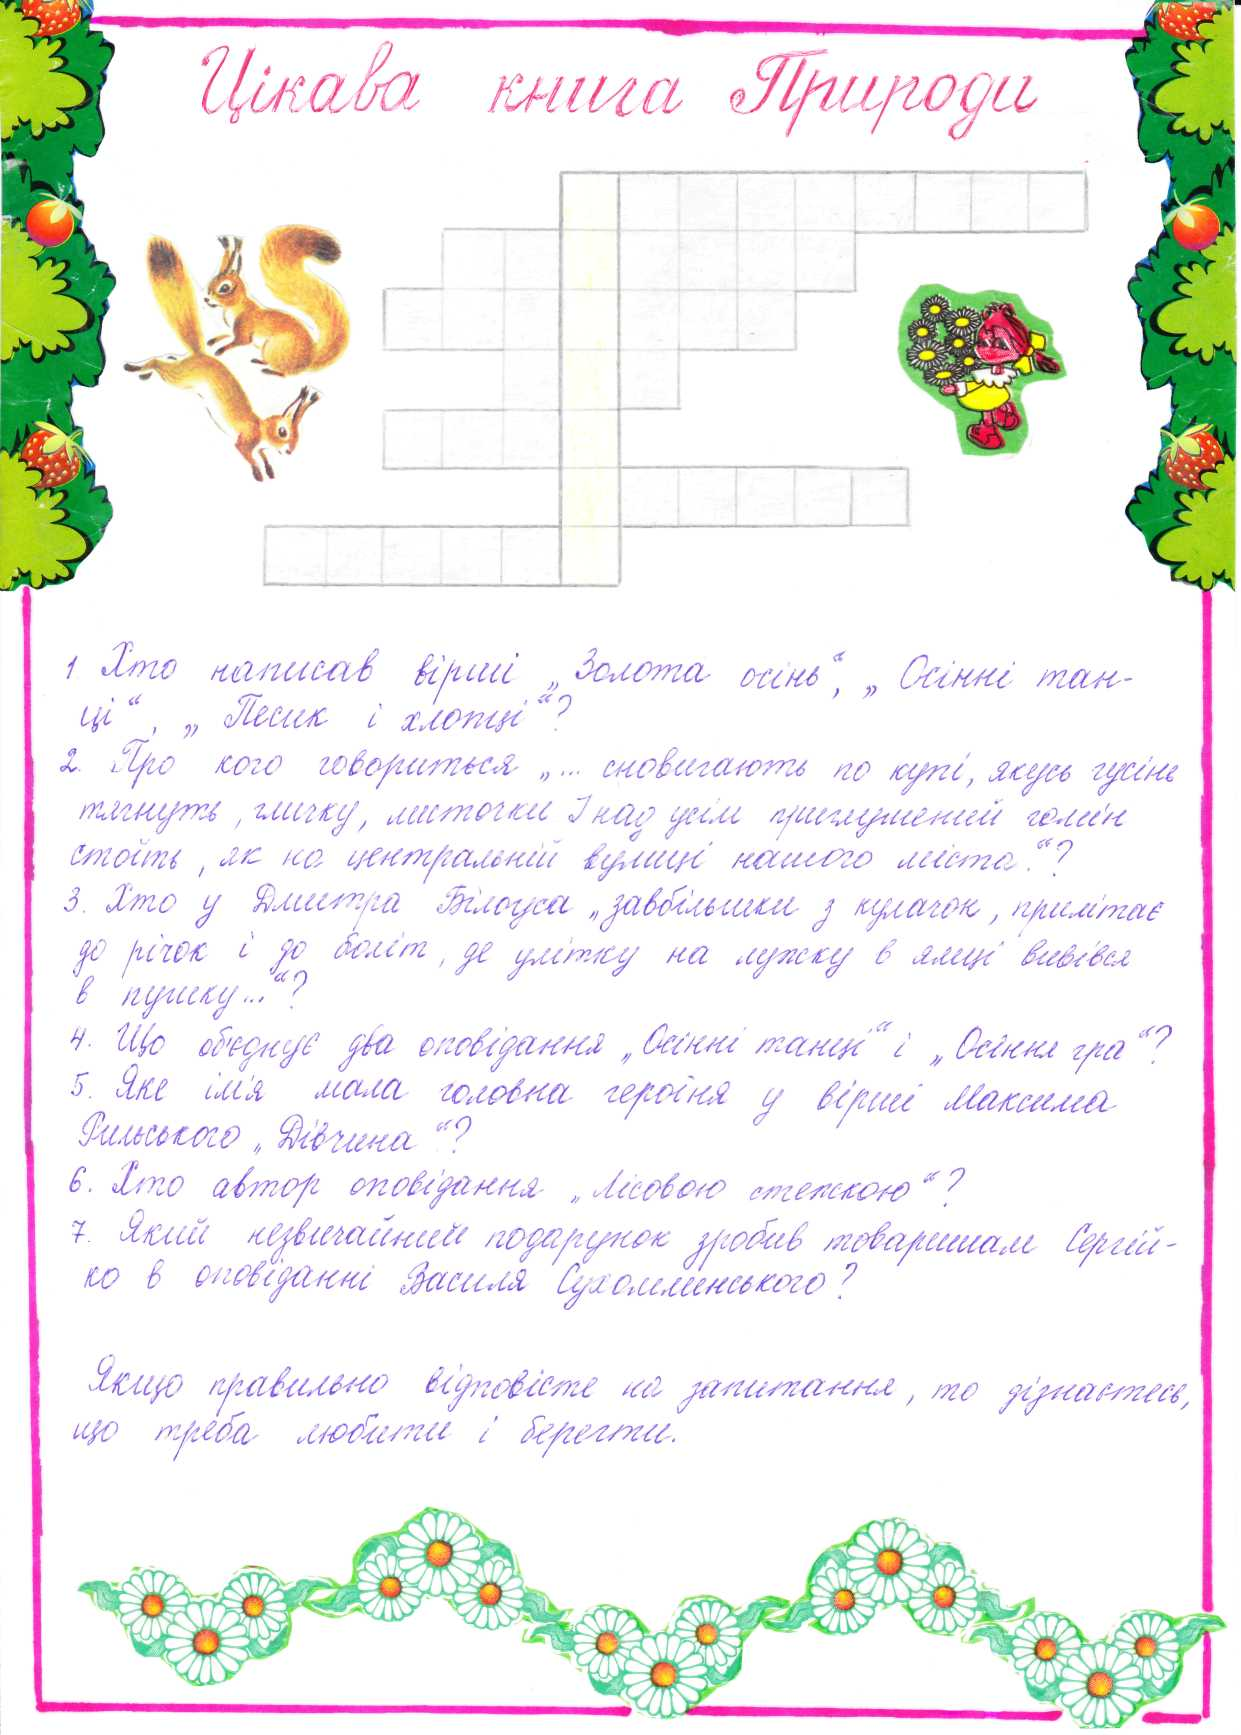 Цікава книга Природи
1 Хто написав вірші „Золота осінь“, „Осінні тан-
ці“, „Песик і хлопці“?
2. Про кого говориться „... сновигають по купі, якусь гусінь
тягнуть, гличку, листочки І над усім приглушений гомін
стоїть, як на центральній вулиці нашого міста.“?
3. Хто у Дмитра Білоуса „завбільшки з кулачок, прилітає
до річок і до боліт, де улітку на лужку в ямці вивівся
в пушку...“?
4. Що об'єднує два оповідання „Осінні танці“ і „Осіння гра“?
5. Яке ім'я мала головна героіня у вірші Максима
Рильського „Дівчина“?
6. Хто автор оповідання „Лісовою стежкою“?
7. Який незвичайний подарунок зробив товаришам Сергій-
ко в оповіданні Василя Сухомлинського?
Якщо правильно відповісте на запитання, то дізнаєтесь,
що треба любити і берегти.